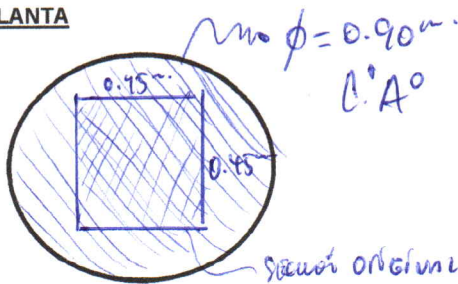 LANTA
φ = 0.90 m.
C°A°
0.45 m.
0.45 m
SECCIÓN ORIGINAL